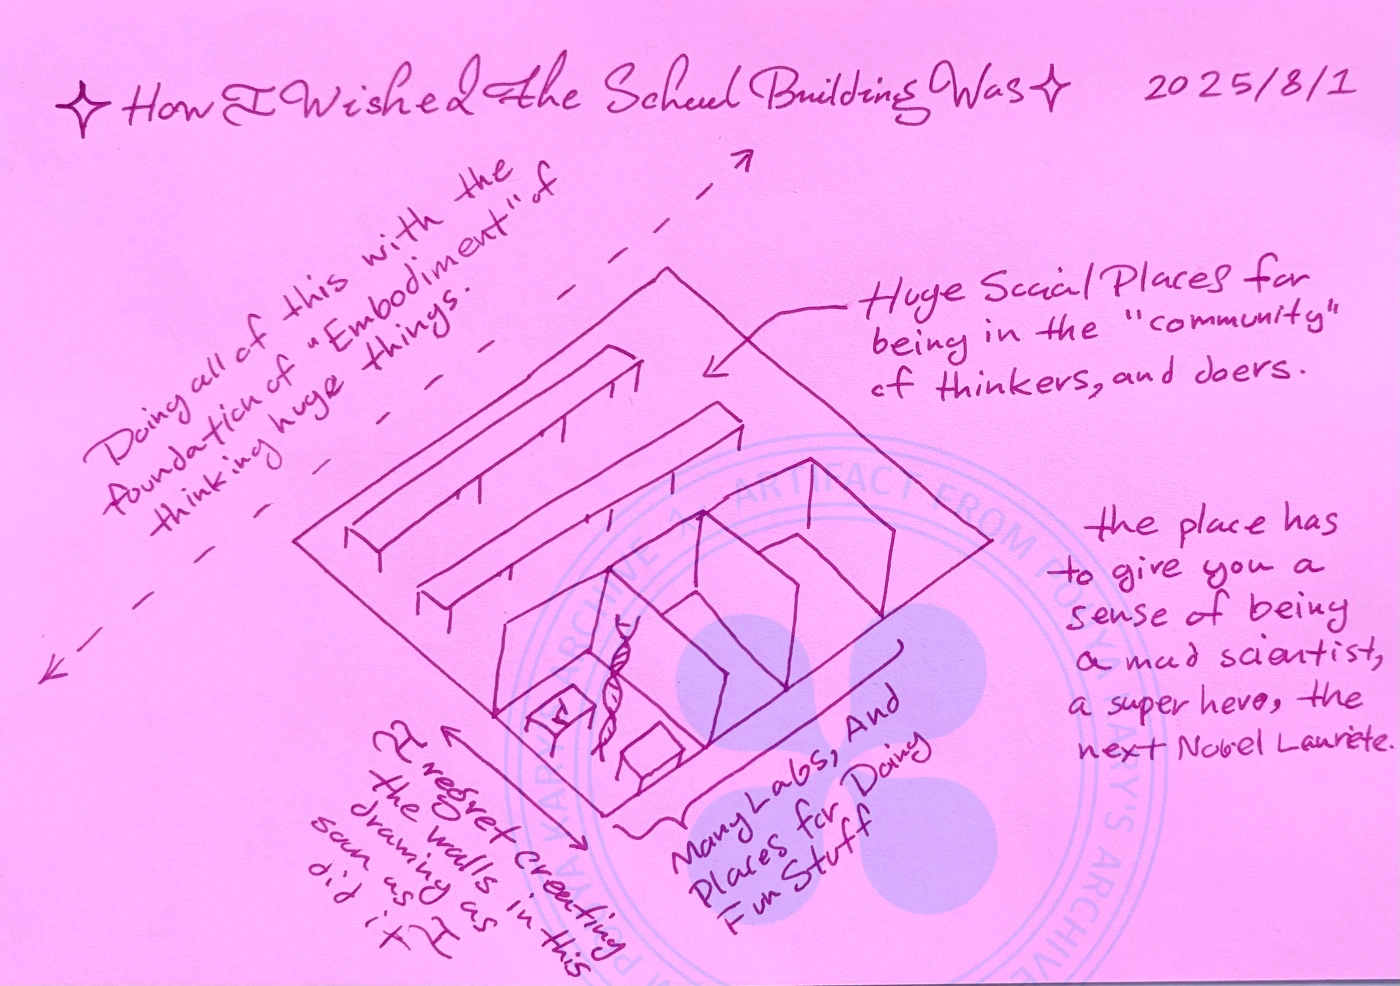 How I Wished The School Building Was
2025/8/1
Doing all of this with the
foundation of "Embodiment" of
thinking huge things.
Huge Social Places for
being in the "community"
of thinkers, and doers.
the place has
to give you a
sense of being
a mad scientist,
a super hero, the
next Nobel Laurete.
I regret creating
the walls in this
drawing as
soon as I
did it
Many Labs, And
Places for Doing
Fun Stuff
ARTIFACT FROM POORYA KARY'S ARCHIVE